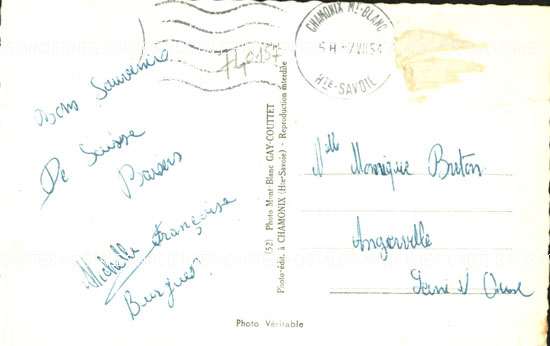 CHAMONIX Mt-BLANC
5 H -7 VIII 54
Hte-SAVOIE
740157
Bons Souvenirs
De Suisse
Baisers
Michelle Françoise
Burguet
(52) Photo Mont Blanc GAY-COUTTET
Photo-édit. à CHAMONIX (Hte-Savoie) - Reproduction interdite
Mlle Monique Breton
Angerville
Seine et Oise
Photo Véritable
ANCIENNES CARTES